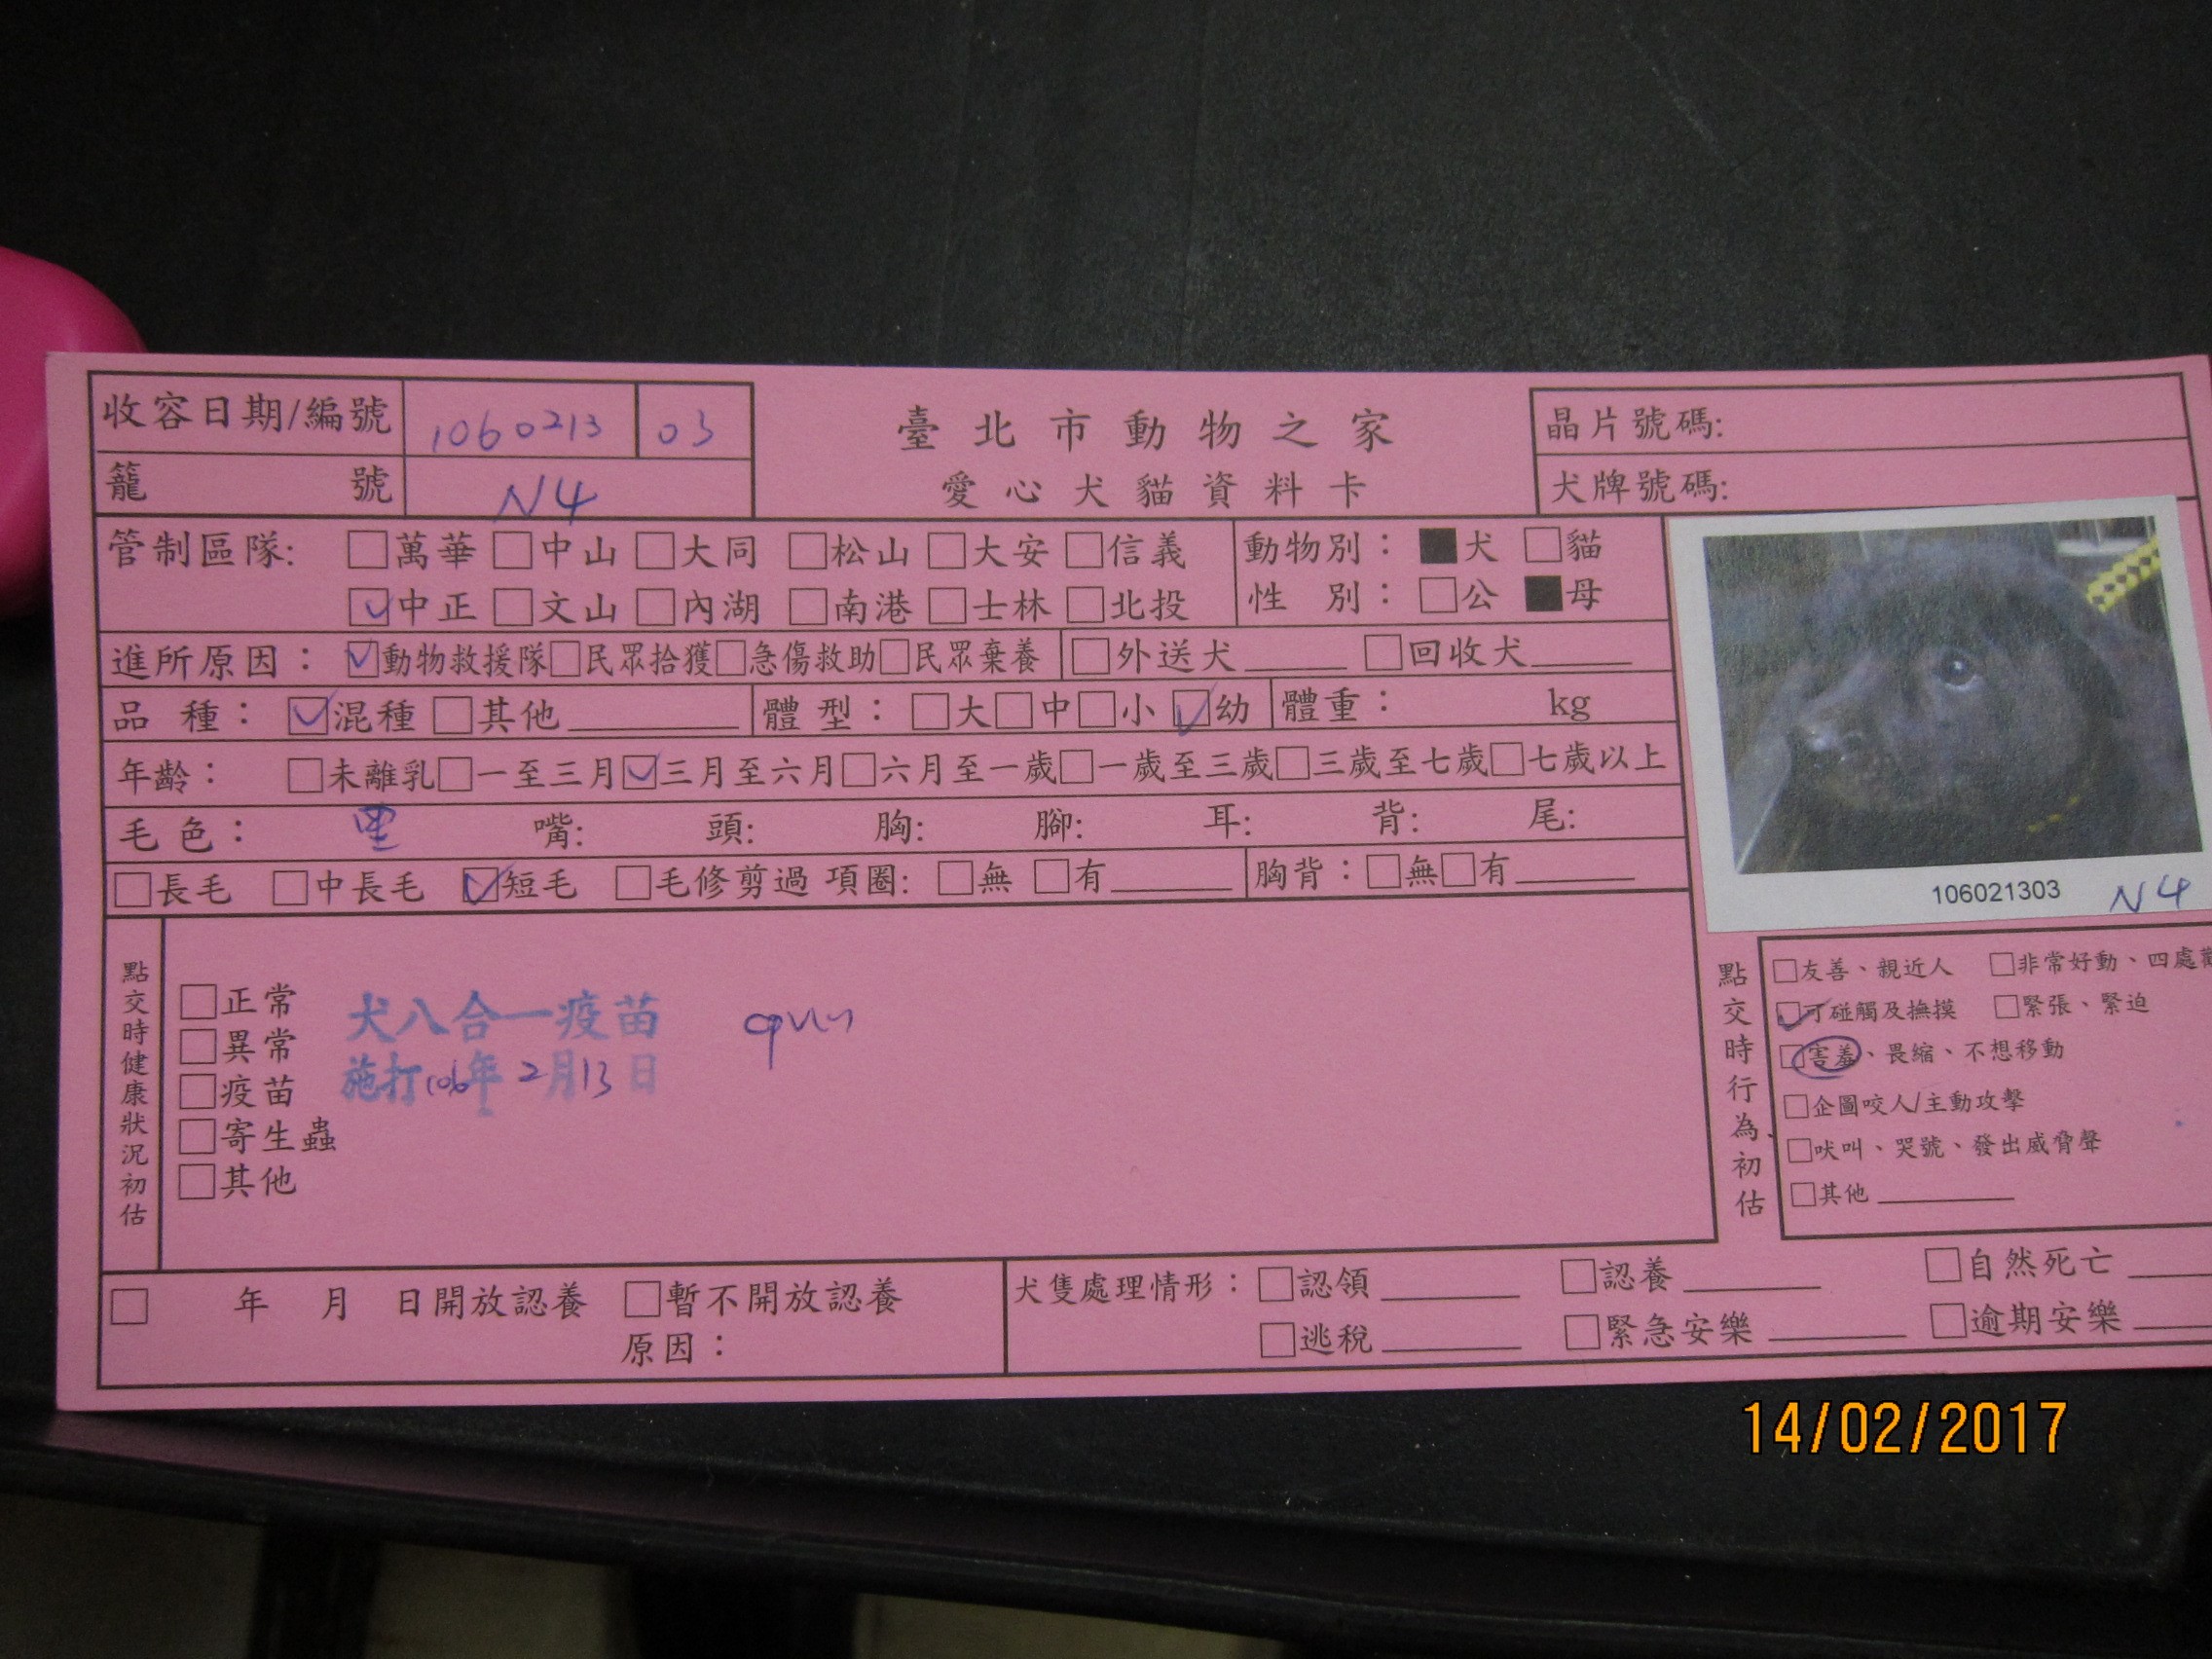 收容日期/編號 1060213 03
籠 號 N4
臺北市動物之家
愛心犬貓資料卡
晶片號碼:
犬牌號碼:
管制區隊: □萬華 □中山 □大同 □松山 □大安 □信義
☑中正 □文山 □內湖 □南港 □士林 □北投
動物別： ■犬 □貓
性 別： □公 ■母
進所原因： ☑動物救援隊 □民眾拾獲 □急傷救助 □民眾棄養 □外送犬____ □回收犬____
品 種： ☑混種 □其他____ 體 型： □大 □中 □小 ☑幼 體重： kg
年齡： □未離乳 □一至三月 ☑三月至六月 □六月至一歲 □一歲至三歲 □三歲至七歲 □七歲以上
毛 色： 黑 嘴: 頭: 胸: 腳: 耳: 背: 尾:
□長毛 □中長毛 ☑短毛 □毛修剪過 項圈: □無 □有____ 胸背： □無 □有____
106021303 N4
點交時健康狀況初估
□正常
□異常
□疫苗
□寄生蟲
□其他
犬八合一疫苗
施打106年2月13日
點交時行為初估
□友善、親近人 □非常好動、四處
☑可碰觸及撫摸 □緊張、緊迫
□害羞、畏縮、不想移動
□企圖咬人/主動攻擊
□吠叫、哭號、發出威脅聲
□其他____
□ 年 月 日開放認養 □暫不開放認養
原因：
犬隻處理情形： □認領____ □認養____ □自然死亡____
□逃稅____ □緊急安樂____ □逾期安樂____
14/02/2017